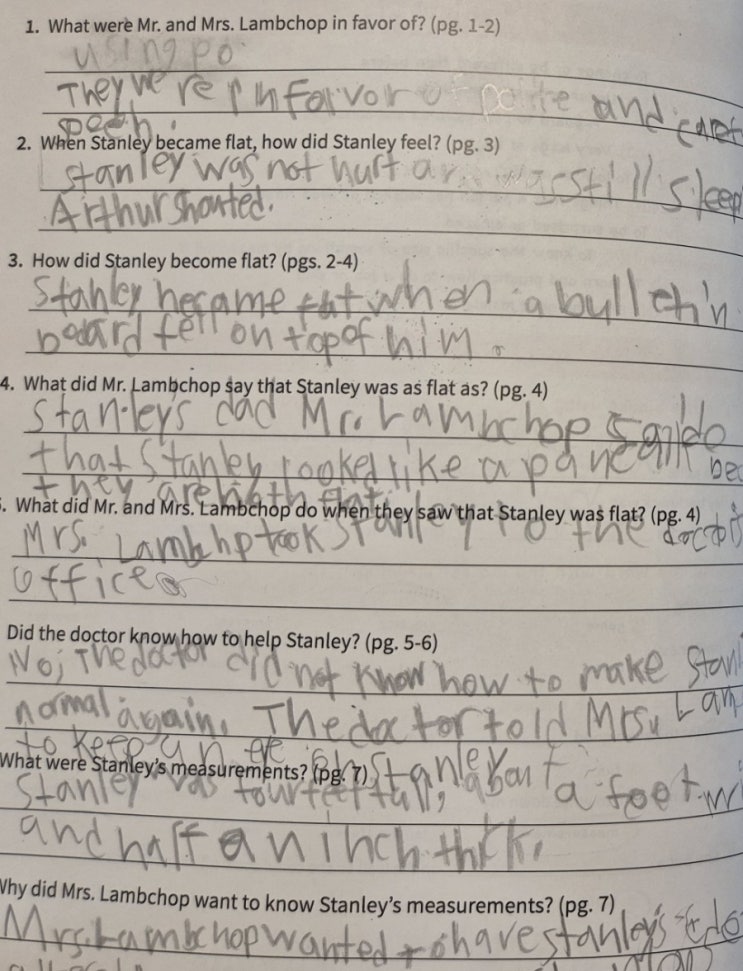 1. What were Mr. and Mrs. Lambchop in favor of? (pg. 1-2)
using po
They we re in Favor of polite and caref
spech.
2. When Stanley became flat, how did Stanley feel? (pg. 3)
Stanley was not hurt was still sleep
Arthur shouted.
3. How did Stanley become flat? (pgs. 2-4)
Stanley became when a bulletin
board fell on top of him.
4. What did Mr. Lambchop say that Stanley was as flat as? (pg. 4)
Stanley's dad Mr. Lambchop
that Stanley looked like a pancake
they are both flat
. What did Mr. and Mrs. Lambchop do when they saw that Stanley was flat? (pg. 4)
Mrs. Lambchop took Stanley to the doctor
office
Did the doctor know how to help Stanley? (pg. 5-6)
No, The doctor did not know how to make Stanl
normal again. The doctor told Mrs. Lam
to keep an eye on Stanley
What were Stanley's measurements? (pg. 7)
Stanley was four feet tall, about a foot wi
and half an inch thick.
Why did Mrs. Lambchop want to know Stanley's measurements? (pg. 7)
Mrs. Lambchop wanted to have Stanley's